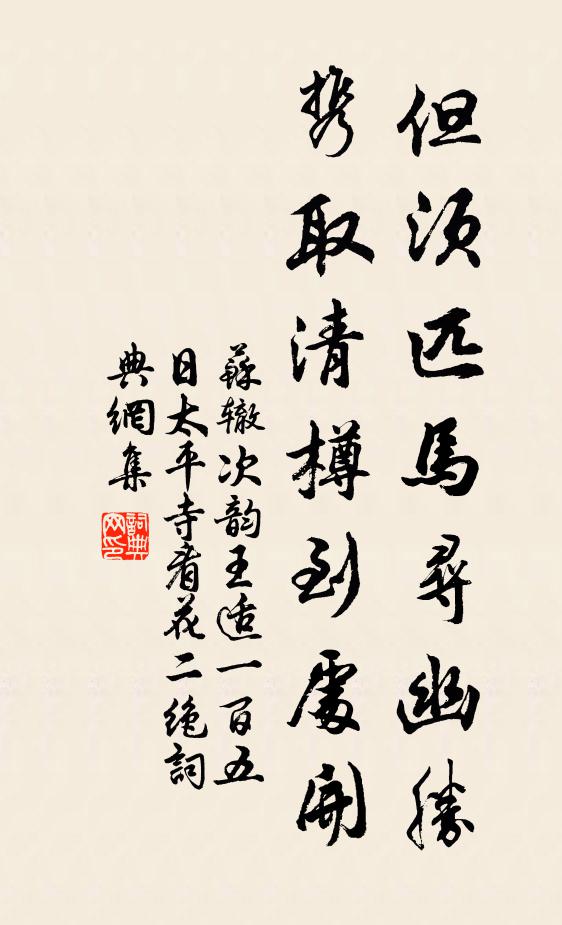 但须匹馬尋幽勝
携取清樽到處開
蘇辙次韵王适一百五
日太平寺看花二绝詞
典網集
詞典
网印